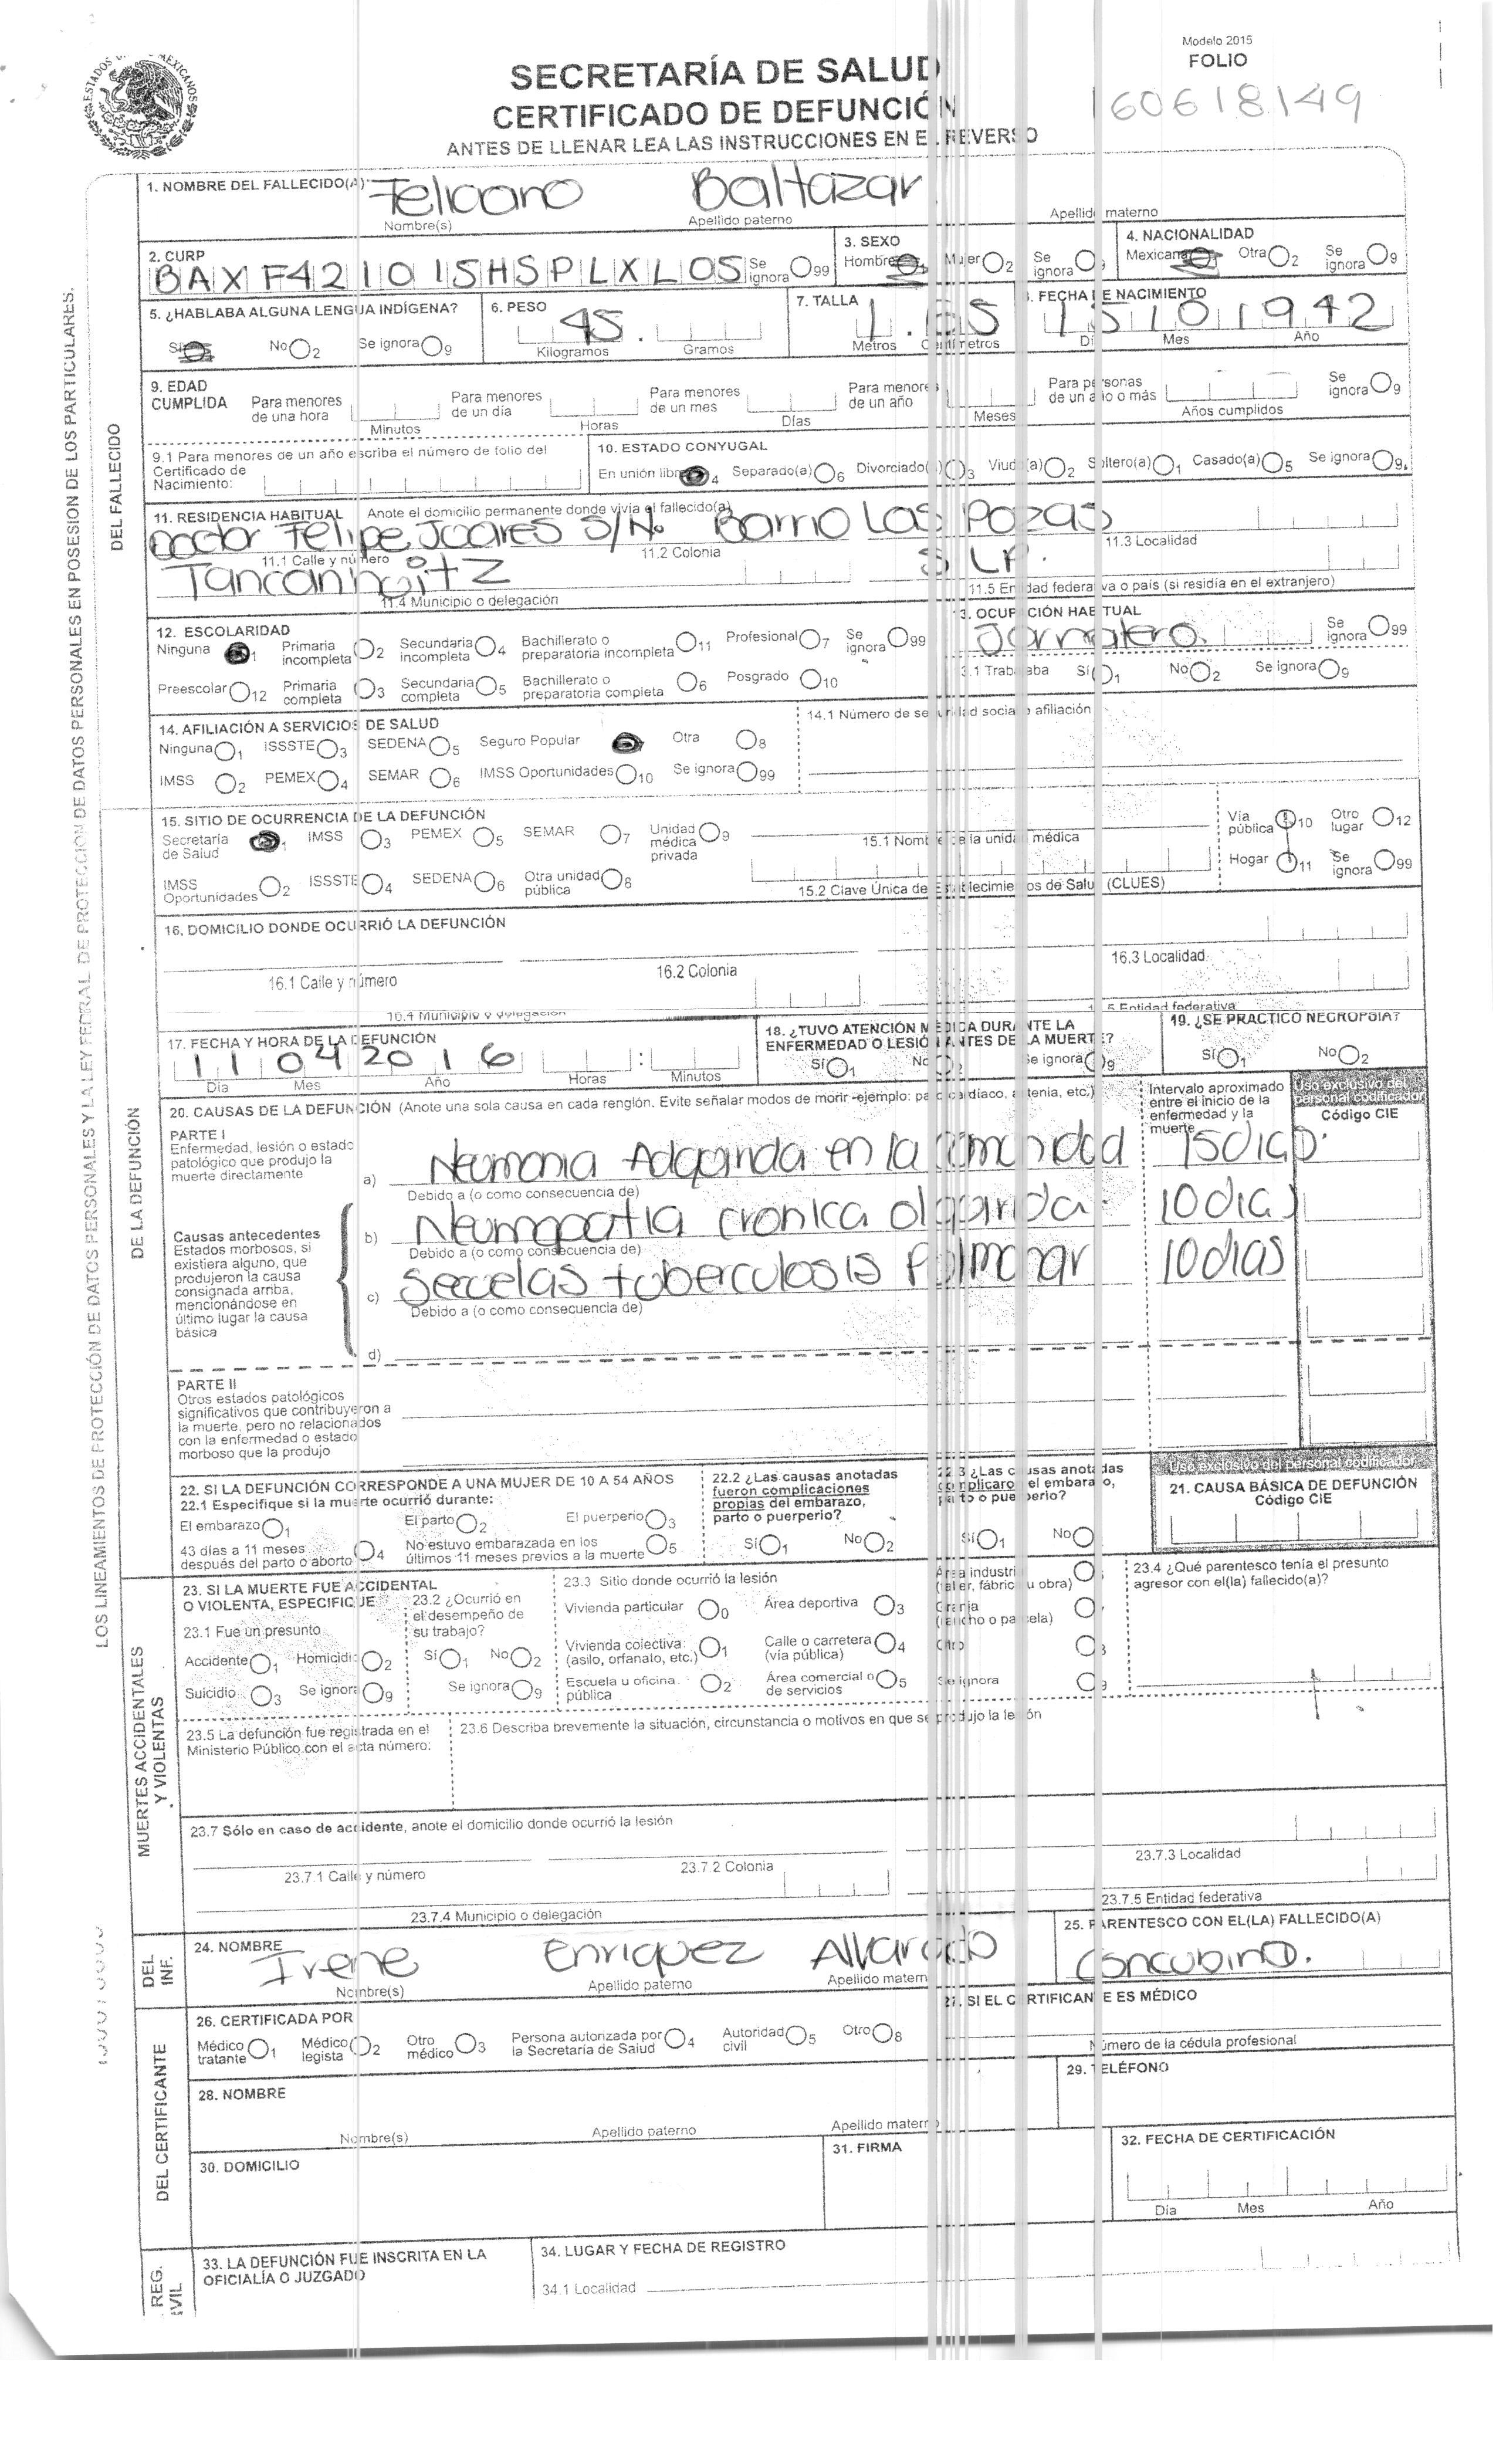 Modelo 2015
FOLIO
160618149
ESTADOS UNIDOS MEXICANOS
SECRETARÍA DE SALUD
CERTIFICADO DE DEFUNCIÓN
ANTES DE LLENAR LEA LAS INSTRUCCIONES EN EL REVERSO
LOS LINEAMIENTOS DE PROTECCIÓN DE DATOS PERSONALES Y LA LEY FEDERAL DE PROTECCION DE DATOS PERSONALES EN POSESION DE LOS PARTICULARES.
DEL FALLECIDO
1. NOMBRE DEL FALLECIDO(A) Feliciano Baltazar
Nombre(s) Apellido paterno Apellido materno
2. CURP BAXF421015HSPLXL05 Se ignora 99
3. SEXO Hombre 1 Mujer 2 Se ignora 9
4. NACIONALIDAD Mexicana Otra 2 Se ignora 9
5. ¿HABLABA ALGUNA LENGUA INDÍGENA? Sí No 2 Se ignora 9
6. PESO 45. Kilogramos Gramos
7. TALLA 1.65 Metros Centímetros
8. FECHA DE NACIMIENTO 15 10 1942 Día Mes Año
9. EDAD CUMPLIDA Para menores de una hora Minutos Para menores de un día Horas Para menores de un mes Días Para menores de un año Meses Para personas de un año o más Años cumplidos Se ignora 9
9.1 Para menores de un año escriba el número de folio del Certificado de Nacimiento:
10. ESTADO CONYUGAL
En unión libre 4 Separado(a) 6 Divorciado(a) 3 Viudo(a) 2 Soltero(a) 1 Casado(a) 5 Se ignora 9
11. RESIDENCIA HABITUAL Anote el domicilio permanente donde vivía el fallecido(a)
Doctor Felipe Juares S/No Barrio Las Pozas
11.1 Calle y número 11.2 Colonia 11.3 Localidad
Tancanhuitz S L P.
11.4 Municipio o delegación 11.5 Entidad federativa o país (si residía en el extranjero)
12. ESCOLARIDAD
Ninguna 1 Primaria incompleta 2 Secundaria incompleta 4 Bachillerato o preparatoria incompleta 11 Profesional 7 Se ignora 99
Preescolar 12 Primaria completa 3 Secundaria completa 5 Bachillerato o preparatoria completa 6 Posgrado 10
13. OCUPACIÓN HABITUAL
Jornalero. Se ignora 99
13.1 Trabajaba Sí 1 No 2 Se ignora 9
14. AFILIACIÓN A SERVICIOS DE SALUD
Ninguna 1 ISSSTE 3 SEDENA 5 Seguro Popular Otra 8
IMSS 2 PEMEX 4 SEMAR 6 IMSS Oportunidades 10 Se ignora 99
14.1 Número de seguridad social o afiliación
DE LA DEFUNCIÓN
15. SITIO DE OCURRENCIA DE LA DEFUNCIÓN
Secretaría de Salud 1 IMSS 3 PEMEX 5 SEMAR 7 Unidad médica privada 9
IMSS Oportunidades 2 ISSSTE 4 SEDENA 6 Otra unidad pública 8
15.1 Nombre de la unidad médica
15.2 Clave Única de Establecimientos de Salud (CLUES)
Vía pública 10 Otro lugar 12
Hogar 11 Se ignora 99
16. DOMICILIO DONDE OCURRIÓ LA DEFUNCIÓN
16.1 Calle y número 16.2 Colonia 16.3 Localidad
16.4 Municipio o delegación 16.5 Entidad federativa
17. FECHA Y HORA DE LA DEFUNCIÓN
11 04 2016 :
Día Mes Año Horas Minutos
18. ¿TUVO ATENCIÓN MÉDICA DURANTE LA ENFERMEDAD O LESIÓN ANTES DE LA MUERTE?
Sí 1 No 2 Se ignora 9
19. ¿SE PRACTICÓ NECROPSIA?
Sí 1 No 2
20. CAUSAS DE LA DEFUNCIÓN (Anote una sola causa en cada renglón. Evite señalar modos de morir -ejemplo: paro cardíaco, astenia, etc.)
Intervalo aproximado entre el inicio de la enfermedad y la muerte
Uso exclusivo del personal codificador
Código CIE
PARTE I
Enfermedad, lesión o estado patológico que produjo la muerte directamente
a) Neumonia Adquirida en la comunidad 15 dias.
Debido a (o como consecuencia de)
Causas antecedentes
Estados morbosos, si existiera alguno, que produjeron la causa consignada arriba, mencionándose en último lugar la causa básica
b) Neumopatia cronica 10 dias
Debido a (o como consecuencia de)
c) Secelas tuberculosis Pulmonar 10 dias
Debido a (o como consecuencia de)
d)
PARTE II
Otros estados patológicos significativos que contribuyeron a la muerte, pero no relacionados con la enfermedad o estado morboso que la produjo
22. SI LA DEFUNCIÓN CORRESPONDE A UNA MUJER DE 10 A 54 AÑOS
22.1 Especifique si la muerte ocurrió durante:
El embarazo 1 El parto 2 El puerperio 3
43 días a 11 meses después del parto o aborto 4 No estuvo embarazada en los últimos 11 meses previos a la muerte 5
22.2 ¿Las causas anotadas fueron complicaciones propias del embarazo, parto o puerperio?
Sí 1 No 2
22.3 ¿Las causas anotadas complicaron el embarazo, parto o puerperio?
Sí 1 No
Uso exclusivo del personal codificador
21. CAUSA BÁSICA DE DEFUNCIÓN
Código CIE
MUERTES ACCIDENTALES Y VIOLENTAS
23. SI LA MUERTE FUE ACCIDENTAL O VIOLENTA, ESPECIFIQUE
23.1 Fue un presunto
Accidente 1 Homicidio 2
Suicidio 3 Se ignora 9
23.2 ¿Ocurrió en el desempeño de su trabajo?
Sí 1 No 2
Se ignora 9
23.3 Sitio donde ocurrió la lesión
Vivienda particular 0 Área deportiva 3 Área industrial (taller, fábrica u obra)
Vivienda colectiva (asilo, orfanato, etc.) 1 Calle o carretera (vía pública) 4 Granja (rancho o parcela)
Otro 8
Escuela u oficina pública 2 Área comercial o de servicios 5 Se ignora 9
23.4 ¿Qué parentesco tenía el presunto agresor con el(la) fallecido(a)?
23.5 La defunción fue registrada en el Ministerio Público con el acta número:
23.6 Describa brevemente la situación, circunstancia o motivos en que se produjo la lesión
23.7 Sólo en caso de accidente, anote el domicilio donde ocurrió la lesión
23.7.1 Calle y número 23.7.2 Colonia 23.7.3 Localidad
23.7.4 Municipio o delegación 23.7.5 Entidad federativa
DEL INF.
24. NOMBRE Irene Enriquez Alvarado
Nombre(s) Apellido paterno Apellido materno
25. PARENTESCO CON EL(LA) FALLECIDO(A)
Concubina.
DEL CERTIFICANTE
26. CERTIFICADA POR
Médico tratante 1 Médico legista 2 Otro médico 3 Persona autorizada por la Secretaría de Salud 4 Autoridad civil 5 Otro 8
27. SI EL CERTIFICANTE ES MÉDICO
Número de la cédula profesional
28. NOMBRE
Nombre(s) Apellido paterno Apellido materno
29. TELÉFONO
30. DOMICILIO
31. FIRMA
32. FECHA DE CERTIFICACIÓN
Día Mes Año
REG. CIVIL
33. LA DEFUNCIÓN FUE INSCRITA EN LA OFICIALÍA O JUZGADO
34. LUGAR Y FECHA DE REGISTRO
34.1 Localidad